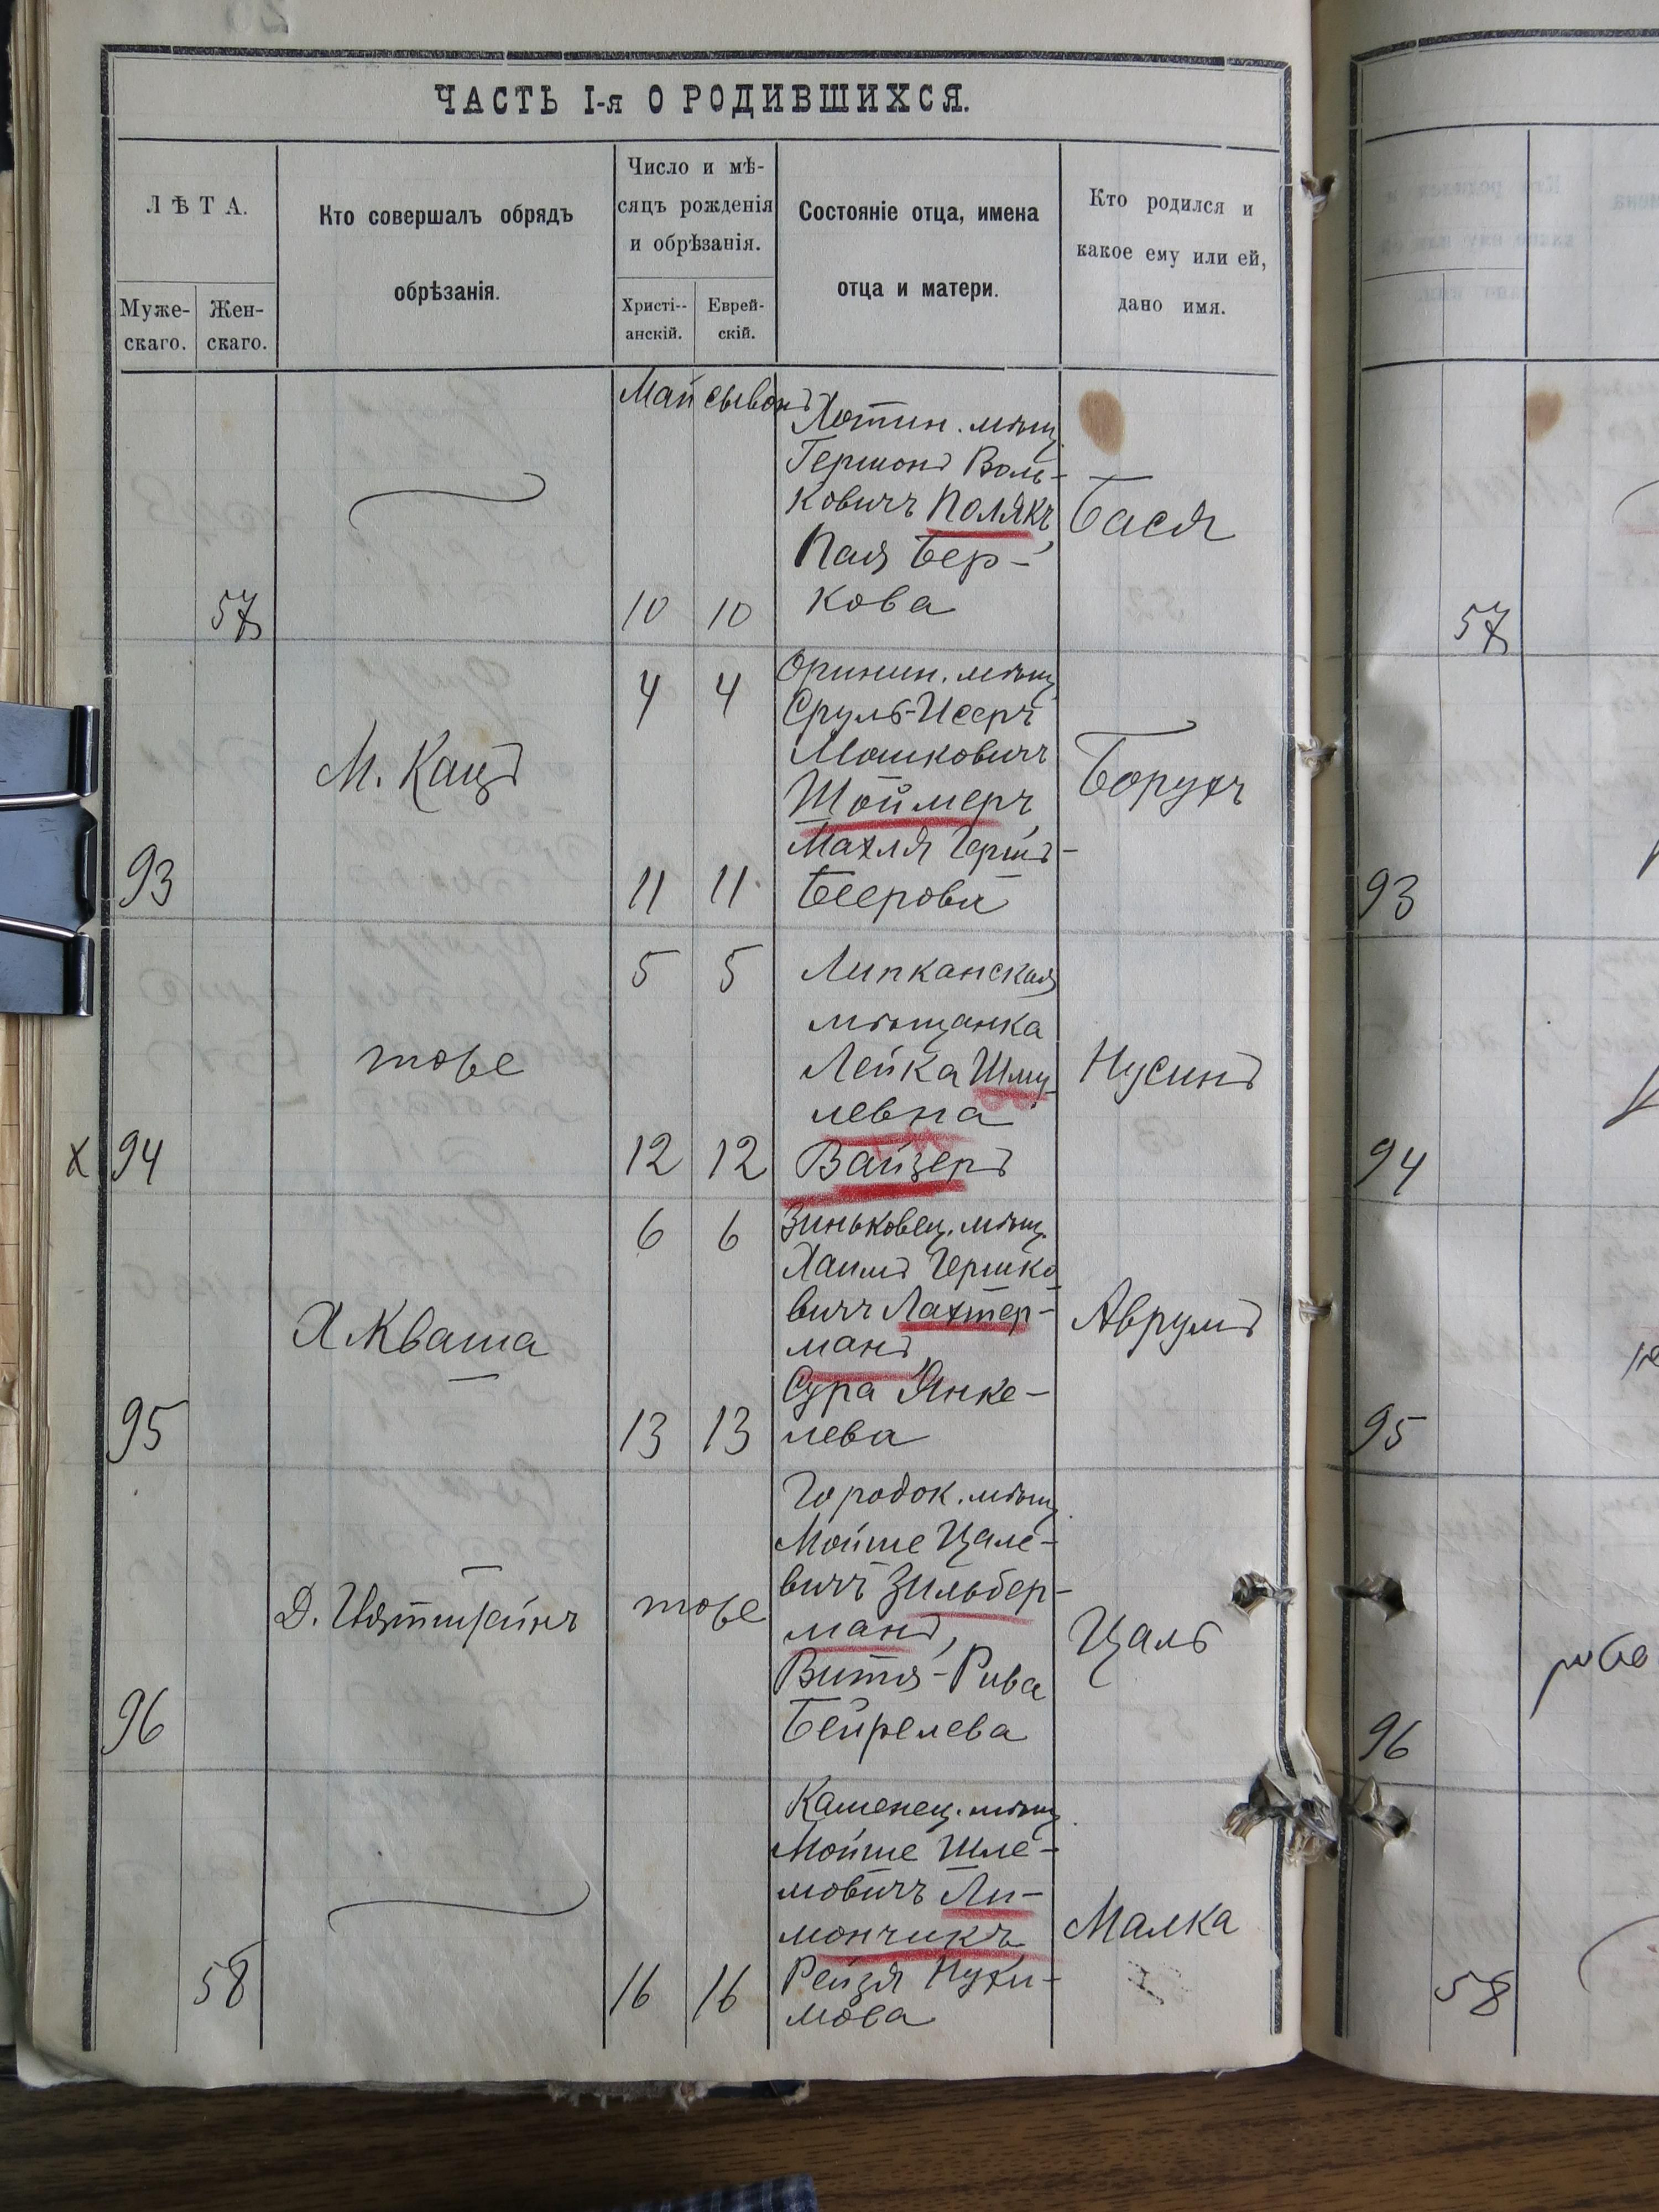 ЧАСТЬ I-я О РОДИВШИХСЯ.
ЛѢТА.
Муже-
скаго.
Жен-
скаго.
Кто совершалъ обрядъ
обрѣзанія.
Число и мѣ-
сяцъ рожденія
и обрѣзанія.
Христі--
анскій.
Еврей-
скій.
Состояніе отца, имена
отца и матери.
Кто родился и
какое ему или ей,
дано имя.
Май сывонъ
57
10 10
Хотин. мѣщ.
Гершонъ Воль-
ковичъ Полякъ,
Пая Бер-
кова
Бася
93
М. Кацъ
4 4
11 11
Оринин. мѣщ.
Сруль-Исеръ
Мошковичъ
Шоймеръ,
Махля Герш-
Беерова
Борухъ
х 94
тоже
5 5
12 12
Липканская
мѣщанка
Лейка Шму-
левна
Вайзеръ
Нусинъ
95
Х Кваша
6 6
13 13
Зиньковец. мѣщ.
Хаимъ Гершко-
вичъ Лахтер-
манъ,
Сура Янке-
лева
Аврумъ
96
тоже
Городок. мѣщ.
Мойше Цале-
вичъ Зильбер-
манъ,
Витя-Рива
Бейрелева
Цаль
58
16 16
Каменец. мѣщ.
Мойше Шле-
мовичъ Ли-
мончикъ
Рейзя Нухи-
мова
Малка
57
93
94
95
96
58